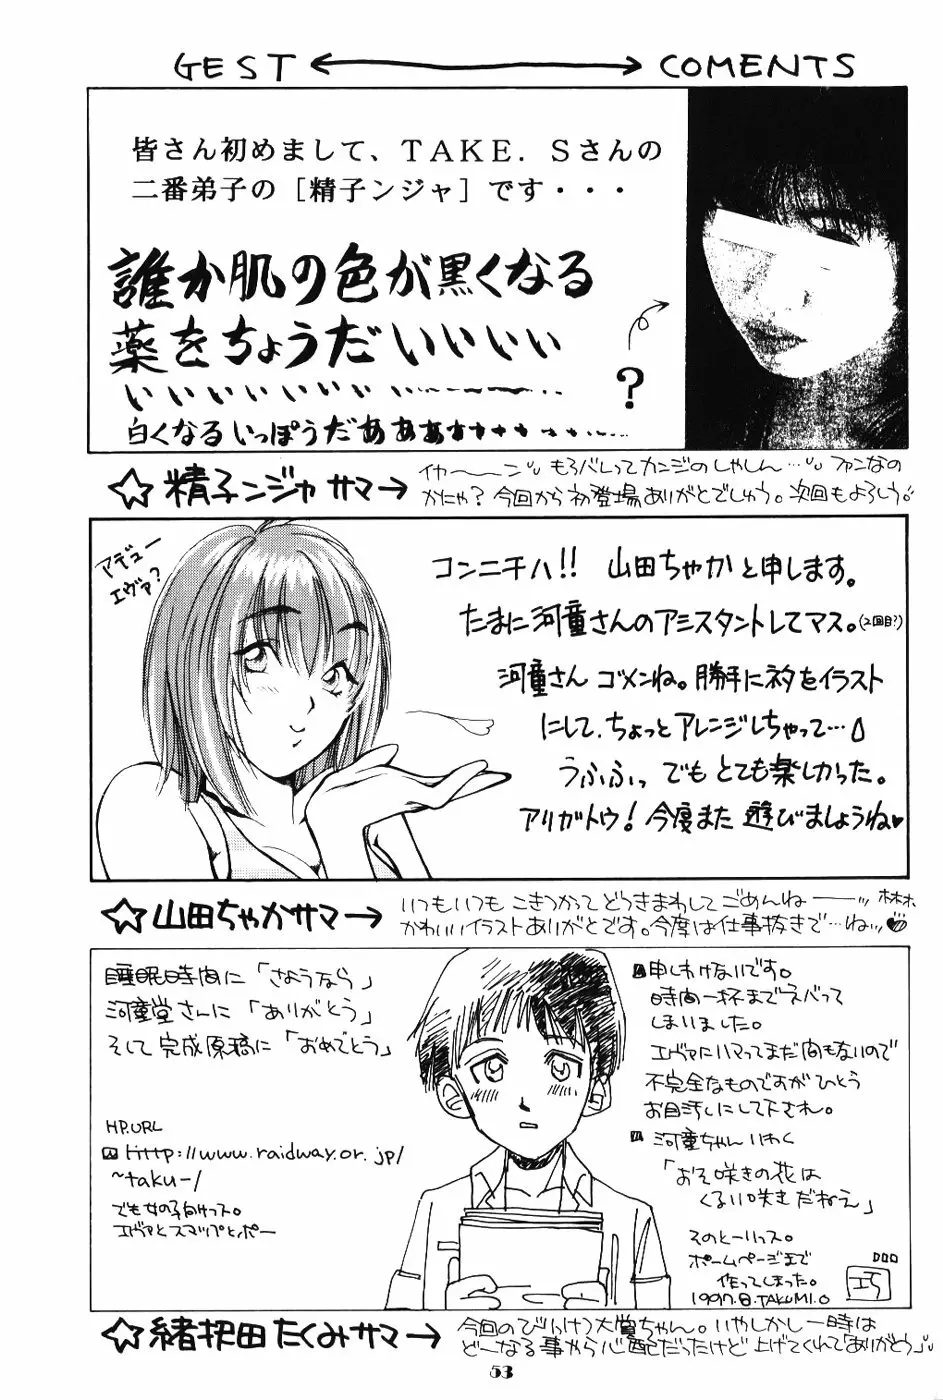 GEST ←→ COMENTS
皆さん初めまして、TAKE．Sさんの
二番弟子の［精子ンジャ］です・・・
誰か肌の色が黒くなる
薬をちょうだいいいい
いいいいいいい
白くなるいっぽうだあああ
?
☆精子ンジャサマ→
イカ〜〜ン もろバレってカンジのしゃしん…ファンなの
かにゃ? 今回から初登場ありがとでしゅう。次回もよろしう!
アデュー
エヴァ?
コンニチハ!! 山田ちゃかと申します。
たまに河童さんのアシスタントしてマス。(2回目?)
河童さん ゴメンね。勝手にネタをイラスト
にして、ちょっとアレンジしちゃって…
うふふっ でもとても楽しかった。
アリガトウ! 今度また 遊びましょうね♥
☆山田ちゃかサマ→
いつもいつも こきつかって どうきまわして ごめんねー
かわいいイラストありがとです。今度は仕事抜きで…ねッ
睡眠時間に「さようなら」
河童堂さんに「ありがとう」
そして完成原稿に「おめでとう」
HP.URL
http://www.raidway.or.jp/
~taku-/
でも女の子向けっス。
エヴァとスマップとポー
申しわけないです。
時間一杯までネバって
しまいました。
エヴァにハマってまだ間もないので
不完全なものですがひとつ
お目汚しにして下され。
河童ちゃんいわく
「おそ咲きの花は
くるい咲きだねえ」
そのとーりっス。
ホームページまで
作ってしまった。
1997.8.TAKUMI.O
☆緒把田たくみサマ→
今回のびっけつ大賞ちゃん。いやしかし一時は
どーなる事やら心配だったけど 上げてくれて「ありがとう」
53